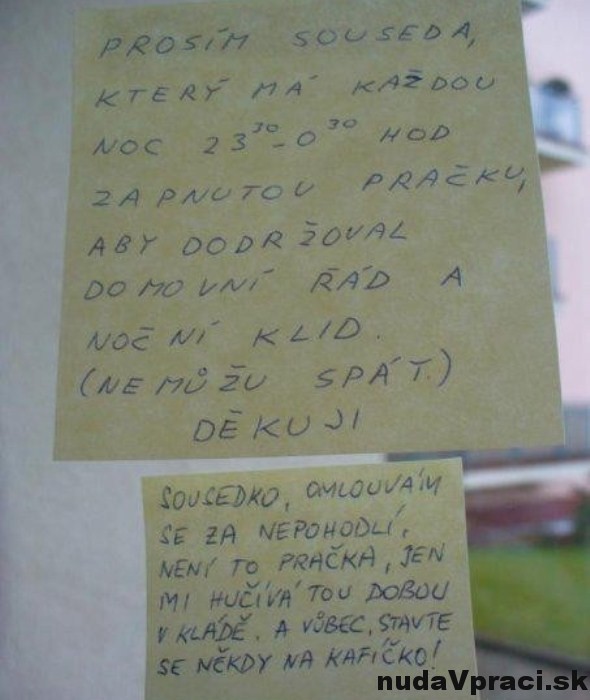 PROSÍM SOUSEDA,
KTERÝ MÁ KAŽDOU
NOC 23³⁰-0³⁰ HOD
ZAPNUTOU PRAČKU,
ABY DODRŽOVAL
DOMOVNÍ ŘÁD A
NOČNÍ KLID.
(NEMŮŽU SPÁT.)
DĚKUJI
SOUSEDKO, OMLOUVÁM
SE ZA NEPOHODLÍ,
NENÍ TO PRAČKA, JEN
MI HUČÍVÁ TOU DOBOU
V KLÁDĚ. A VŮBEC, STAVTE
SE NĚKDY NA KAFÍČKO!
nudaVpraci.sk